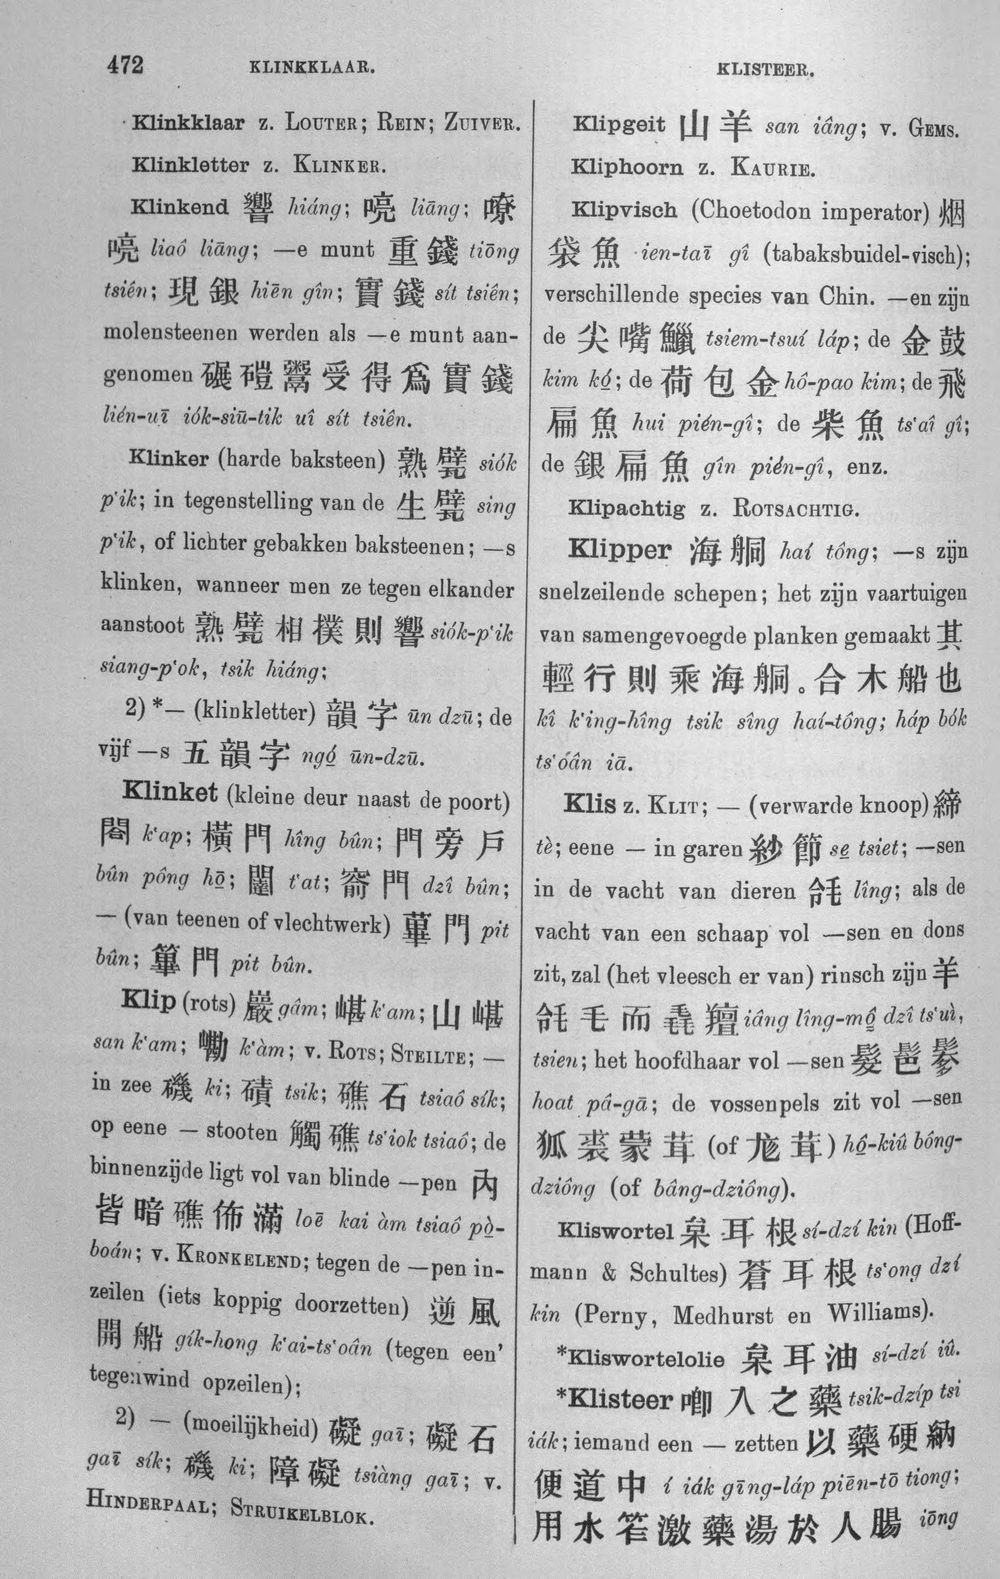 472
KLINKKLAAR.
KLISTEER.
Klinkklaar z. LOUTER; REIN; ZUIVER.
Klinkletter z. KLINKER.
Klinkend 響 hiáng; 喨 liāng; 嘹
喨 liaô liāng; —e munt 重錢 tiōng
tsiên; 現銀 hiēn gîn; 實錢 sít tsiên;
molensteenen werden als —e munt aan-
genomen 碾磑鬻受得爲實錢
lién-uī iók-siū-tik uî sít tsiên.
Klinker (harde baksteen) 熟甓 siók
p'ik; in tegenstelling van de 生甓 sing
p'ik, of lichter gebakken baksteenen; —s
klinken, wanneer men ze tegen elkander
aanstoot 熟甓相撲則響 siók-p'ik
siang-p'ok, tsik hiáng;
2) *— (klinkletter) 韻字 ūn dzū; de
vijf —s 五韻字 ngó ūn-dzū.
Klinket (kleine deur naast de poort)
閤 k'ap; 橫門 hîng bûn; 門旁戶
bûn pông hō; 闥 t'at; 門 dzî bûn;
— (van teenen of vlechtwerk) 蓽門 pit
bûn; 篳門 pit bûn.
Klip (rots) 巖 gâm; 嵁 k'am; 山嵁
san k'am; k'àm; v. ROTS; STEILTE; —
in zee 磯 ki; 磧 tsik; 礁石 tsiaô sík;
op eene — stooten 觸礁 ts'iok tsiaô; de
binnenzijde ligt vol van blinde —pen 內
皆暗礁佈滿 loē kai àm tsiaô pò-
boán; v. KRONKELEND; tegen de —pen in-
zeilen (iets koppig doorzetten) 逆風
開船 gík-hong k'ai-ts'oân (tegen een'
tegenwind opzeilen);
2) — (moeilijkheid) 礙 gaī; 礙石
gaī sík; 磯 ki; 障礙 tsiàng gaī; v.
HINDERPAAL; STRUIKELBLOK.
Klipgeit 山羊 san iâng; v. GEMS.
Kliphoorn z. KAURIE.
Klipvisch (Choetodon imperator) 烟
袋魚 ien-taī gî (tabaksbuidel-visch);
verschillende species van Chin. —en zijn
de 尖嘴鱲 tsiem-tsuí láp; de 金鼓
kim kó; de 荷包金 hô-pao kim; de 飛
扁魚 hui pién-gî; de 柴魚 ts'aî gî;
de 銀扁魚 gîn pién-gî, enz.
Klipachtig z. ROTSACHTIG.
Klipper 海舸 haí tông; —s zijn
snelzeilende schepen; het zijn vaartuigen
van samengevoegde planken gemaakt 其
輕行則乘海舸。合木船也
kî k'ing-hîng tsik sîng haí-tông; háp bók
ts'oân iā.
Klis z. KLIT; — (verwarde knoop) 締
tè; eene — in garen 紗節 se tsiet; —sen
in de vacht van dieren 㲆 lîng; als de
vacht van een schaap vol —sen en dons
zit, zal (het vleesch er van) rinsch zijn 羊
㲆毛而毳羶 iâng lîng-mô dzî ts'uì,
tsien; het hoofdhaar vol —sen 髮
hoat pâ-gā; de vossenpels zit vol —sen
狐裘蒙茸 (of 尨茸) hô-kiû bông-
dziông (of bâng-dziông).
Kliswortel 枲耳根 sí-dzí kin (Hoff-
mann & Schultes) 蒼耳根 ts'ong dzí
kin (Perny, Medhurst en Williams).
*Kliswortelolie 枲耳油 sí-dzí iû.
*Klisteer 喞入之藥 tsik-dzíp tsi
iák; iemand een — zetten 以藥硬納
便道中 í iák gīng-láp piēn-tō tiong;
用水笮激藥湯於人腸 iōng